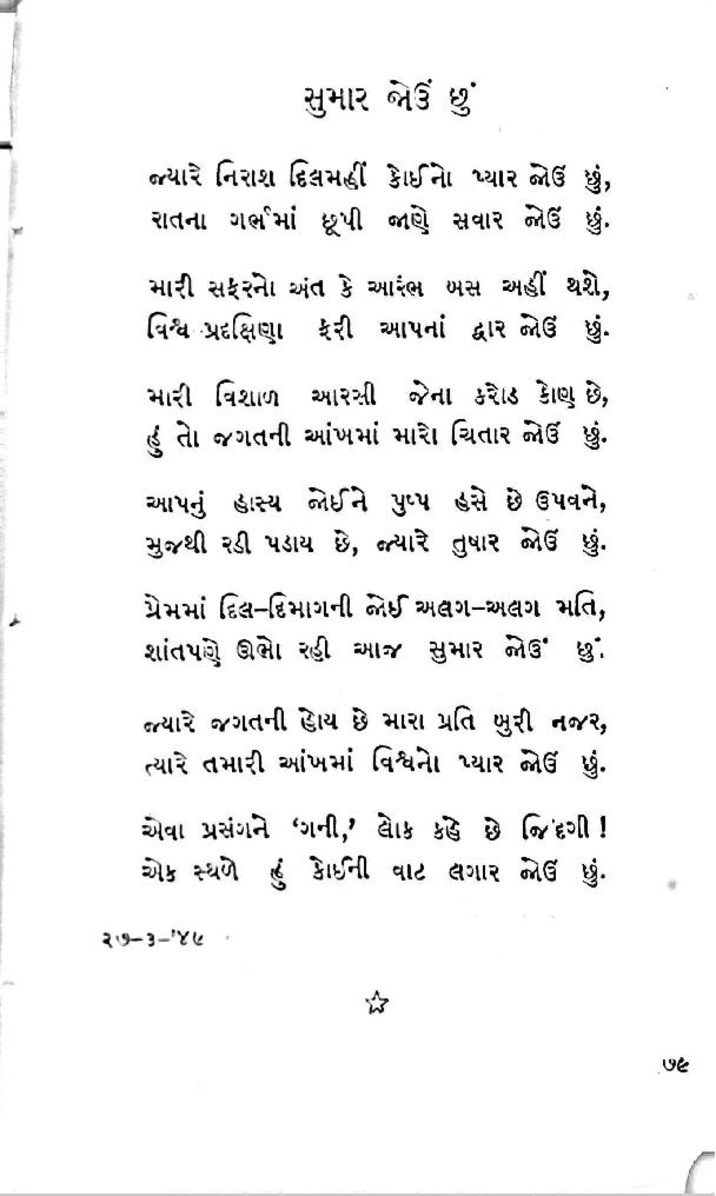 સુમાર જોઉં છું
જ્યારે નિરાશ દિલમહીં કોઈનો પ્યાર જોઉં છું,
રાતના ગર્ભમાં છૂપી જાણે સવાર જોઉં છું.
મારી સફરનો અંત કે આરંભ બસ અહીં થશે,
વિશ્વ પ્રદક્ષિણા ફરી આપનાં દ્વાર જોઉં છું.
મારી વિશાળ આરસી જેના કરોડ કોણ છે,
હું તો જગતની આંખમાં મારો ચિતાર જોઉં છું.
આપનું હાસ્ય જોઈને પુષ્પ હસે છે ઉપવને,
મુજથી રડી પડાય છે, જ્યારે તુષાર જોઉં છું.
પ્રેમમાં દિલ–દિમાગની જોઈ અલગ–અલગ મતિ,
શાંતપણે ઊભો રહી આજ સુમાર જોઉં છું.
જ્યારે જગતની હોય છે મારા પ્રતિ બુરી નજર,
ત્યારે તમારી આંખમાં વિશ્વનો પ્યાર જોઉં છું.
એવા પ્રસંગને ‘ગની,’ લોક કહે છે જિંદગી !
એક સ્થળે હું કોઈની વાટ લગાર જોઉં છું.
૨૭–૩–’૪૯
૭૯